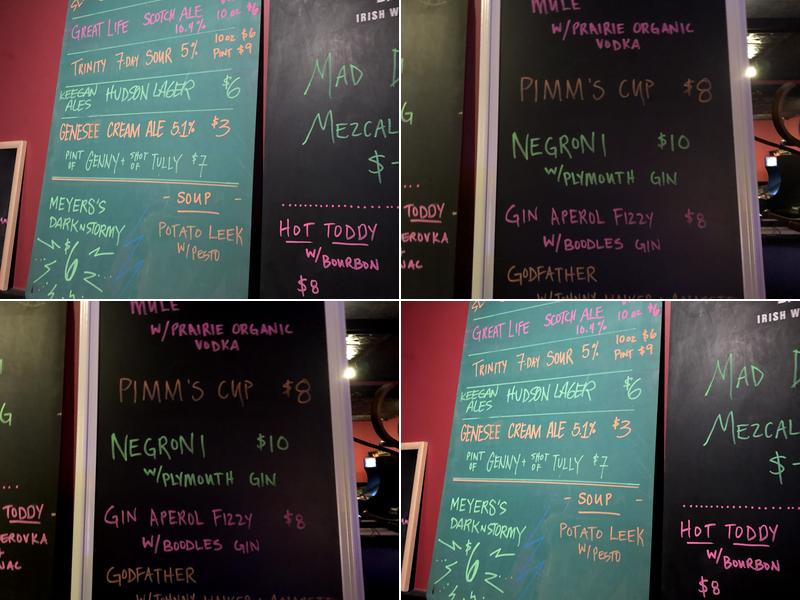 GREAT LIFE SCOTCH ALE 10.4% 10 oz $6
TRINITY 7-DAY SOUR 5% 10 oz $6 PINT $9
KEEGAN ALES HUDSON LAGER $6
GENESEE CREAM ALE 5.1% $3
PINT OF GENNY + SHOT OF TULLY $7
MEYERS'S
DARK N STORMY
$6
- SOUP -
POTATO LEEK
W/PESTO
IRISH W
MAD D
MEZCAL
$-
HOT TODDY
W/BOURBON
$8
G
TODDY -
EROVKA
NAC
MULE
W/PRAIRIE ORGANIC
VODKA
PIMM'S CUP $8
NEGRONI $10
W/PLYMOUTH GIN
GIN APEROL FIZZY $8
W/BOODLES GIN
GODFATHER
G
TODDY -
EROVKA
+
NAC
MULE
W/PRAIRIE ORGANIC
VODKA
PIMM'S CUP $8
NEGRONI $10
W/PLYMOUTH GIN
GIN APEROL FIZZY $8
W/BOODLES GIN
GODFATHER
GREAT LIFE SCOTCH ALE 10.4% 10 oz $6
TRINITY 7-DAY SOUR 5% 10 oz $6 PINT $9
KEEGAN ALES HUDSON LAGER $6
GENESEE CREAM ALE 5.1% $3
PINT OF GENNY + SHOT OF TULLY $7
MEYERS'S
DARK N STORMY
$6
- SOUP -
POTATO LEEK
W/PESTO
IRISH W
MAD D
MEZCAL
$-
HOT TODDY
W/BOURBON
$8